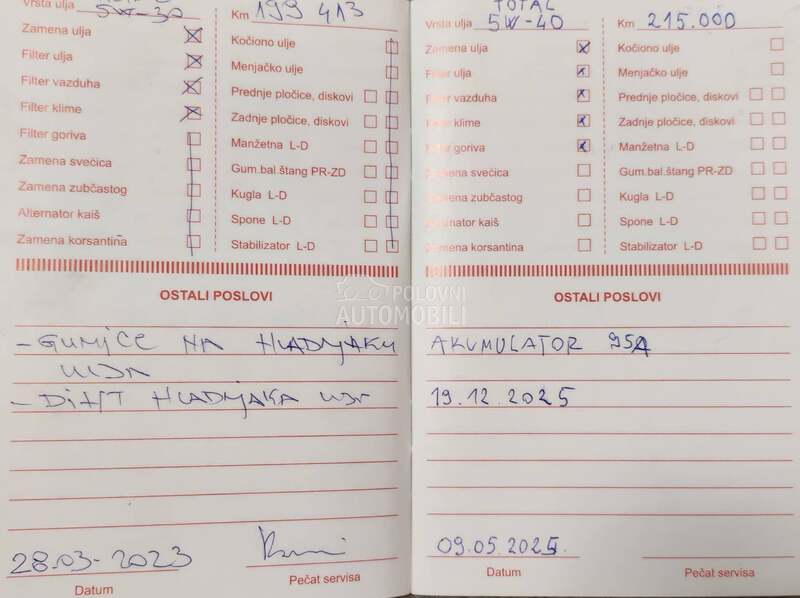 Vrsta ulja 5W-30 Km 199 413
Zamena ulja Kočiono ulje
Filter ulja Menjačko ulje
Filter vazduha Prednje pločice, diskovi
Filter klime Zadnje pločice, diskovi
Filter goriva Manžetna L-D
Zamena svećica Gum.bal.štang PR-ZD
Zamena zubčastog Kugla L-D
Alternator kaiš Spone L-D
Zamena korsantina Stabilizator L-D
OSTALI POSLOVI
- GUMICE NA HLADNJAKU
ULJA
- DIHT HLADNJAKA
28.03-2023
Datum Pečat servisa
TOTAL
Vrsta ulja 5W-40 Km 215.000
Zamena ulja Kočiono ulje
Filter ulja Menjačko ulje
Filter vazduha Prednje pločice, diskovi
Filter klime Zadnje pločice, diskovi
Filter goriva Manžetna L-D
Zamena svećica Gum.bal.štang PR-ZD
Zamena zubčastog Kugla L-D
Alternator kaiš Spone L-D
Zamena korsantina Stabilizator L-D
OSTALI POSLOVI
AKUMULATOR 95A
19.12.2025
09.05.2025.
Datum Pečat servisa
POLOVNI
AUTOMOBILI